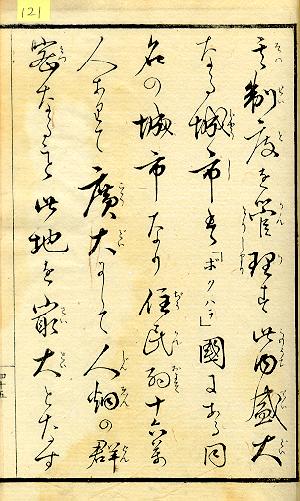 121
其制度を管理す此内盛大
なる城市は「ボクハラ」國にある同
名の城市なり住民十六萬
人ありて廣大にして人烟の群
密なること此地を最大となす
四十五